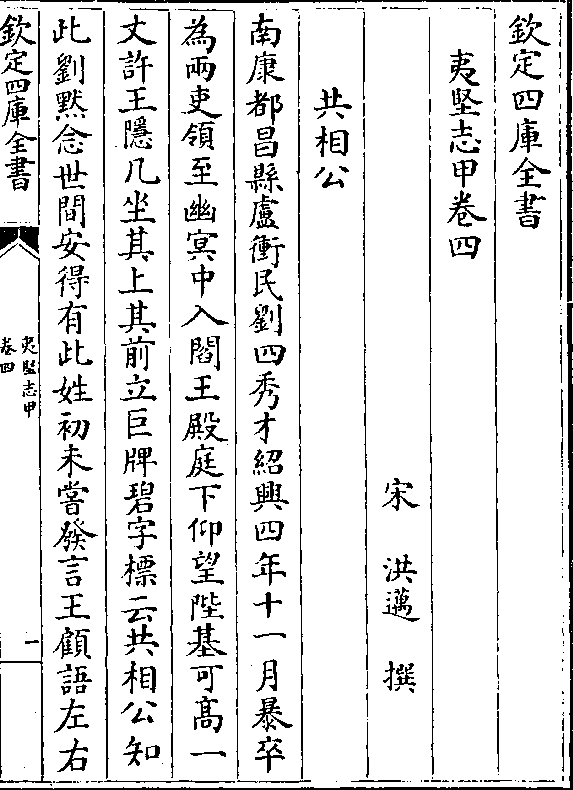 欽定四庫全書
夷堅志甲卷四
宋 洪邁 撰
共相公
南康都昌縣盧衝民劉四秀才紹興四年十一月暴卒
為兩吏領至幽冥中入閻王殿庭下仰望陛基可髙一
丈許王隱几坐其上其前立巨牌碧字標云共相公知
此劉黙念世間安得有此姓初未嘗發言王顧語左右
欽定四庫全書
夷堅志甲
卷四
一